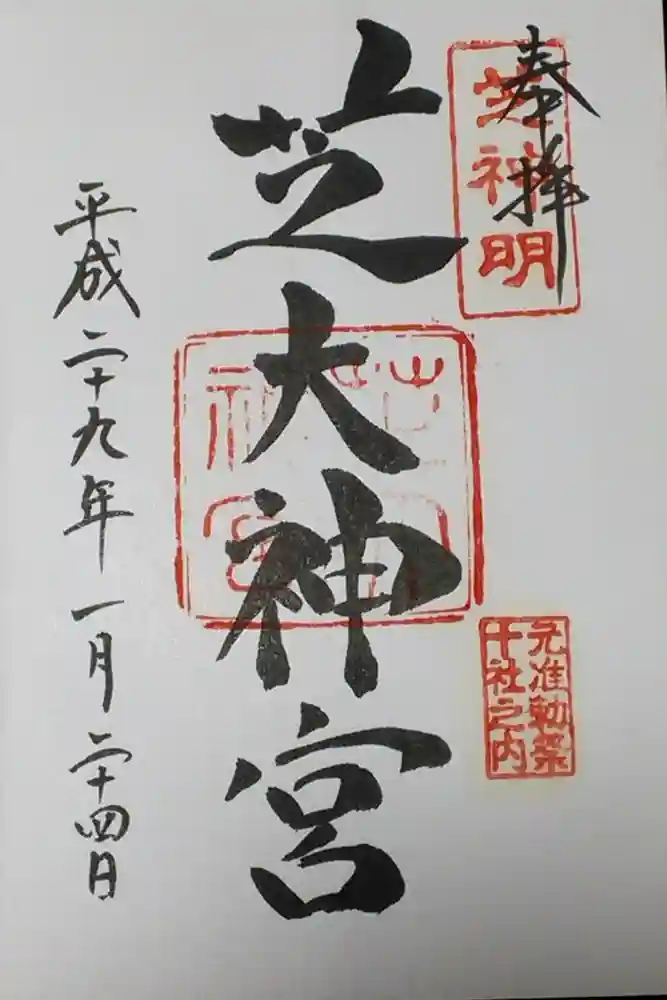 奉拝
芝神明
芝大神宮
芝大神宮
元准勅祭
十社之内
平成二十九年一月二十四日